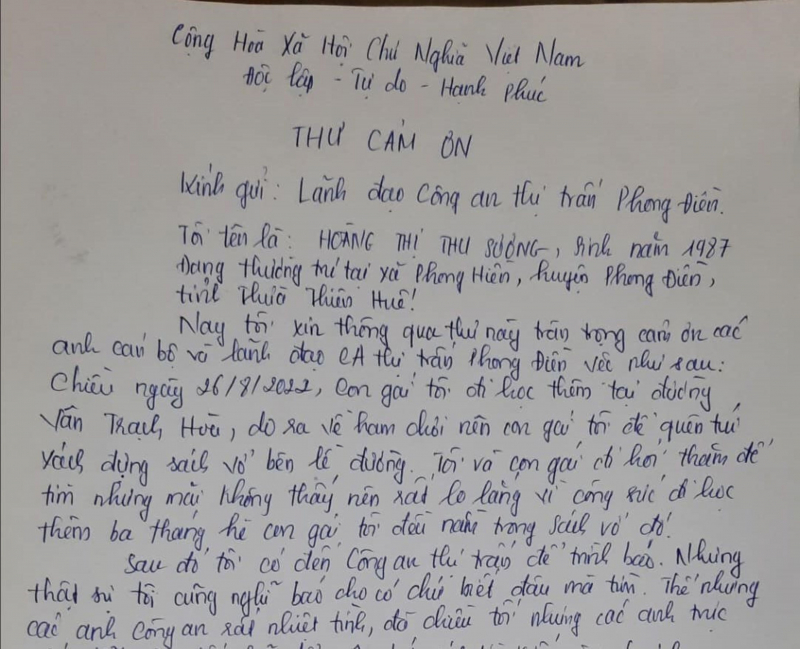 Cộng Hoà Xã Hội Chủ Nghĩa Việt Nam
Độc lập - Tự do - Hạnh Phúc
THƯ CẢM ƠN
Kính gửi: Lãnh đạo Công an thị trấn Phong Điền.
Tôi tên là: HOÀNG THỊ THU SƯƠNG, sinh năm 1987
Đang thường trú tại xã Phong Hiền, huyện Phong Điền,
tỉnh Thừa Thiên Huế!
Nay tôi xin thông qua thư này trân trọng cảm ơn các
anh cán bộ và lãnh đạo CA thị trấn Phong Điền việc như sau:
Chiều ngày 26/8/2022, con gái tôi đi học thêm tại đường
Vân Trạch Hoà, do ra về ham chơi nên con gái tôi để quên túi
xách đựng sách vở bên lề đường. Tôi và con gái có hỏi thăm để
tìm nhưng mãi không thấy nên rất lo lắng vì công sức đi học
thêm ba tháng hè con gái tôi đều nằm trong sách vở đó.
Sau đó tôi có đến Công an thị trấn để trình báo. Nhưng
thật sự tôi cũng nghĩ báo cho có chứ biết đâu mà tìm. Thế nhưng
các anh Công an rất nhiệt tình, đã chiều tối nhưng các anh trực